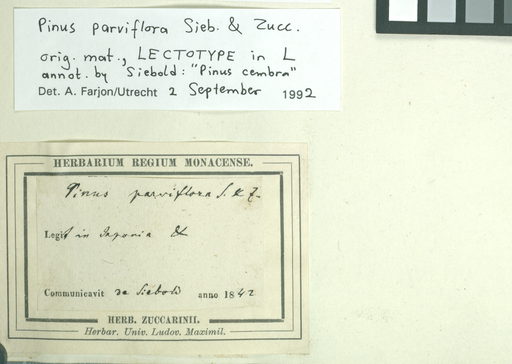 Pinus parviflora Sieb. & Zucc.
orig. mat., LECTOTYPE in L
annot. by Siebold: "Pinus cembra"
Det. A. Farjon/Utrecht 2 September 1992
HERBARIUM REGIUM MONACENSE.
Pinus parviflora S. & Z.
Legit in Japonia
Communicavit de Siebold anno 1842
HERB. ZUCCARINII.
Herbar. Univ. Ludov. Maximil.